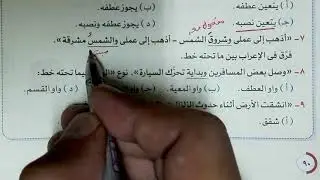 (أ) يتعين عطفه.
(ب) يجوز نصبه.
(جـ) يتعين نصبه. مفعول معه
(د) يجوز عطفه ونصبه.
٧- «أذهب إلى عملى وشروق الشمس – أذهب إلى عملى والشمس مشرقة».
فرّق فى الإعراب بين ما تحته خط.
٨- «وصل بعض المسافرين وبداية تحرُّك السيارة». نوع الواو فيما تحته خط:
(أ) واو العطف. (ب) واو المعية. (جـ) واو الحال. (د) واو القسم.
٩- «انشقت الأرض أثناء حدوث الزلزال
(أ) شفق.
٩٠